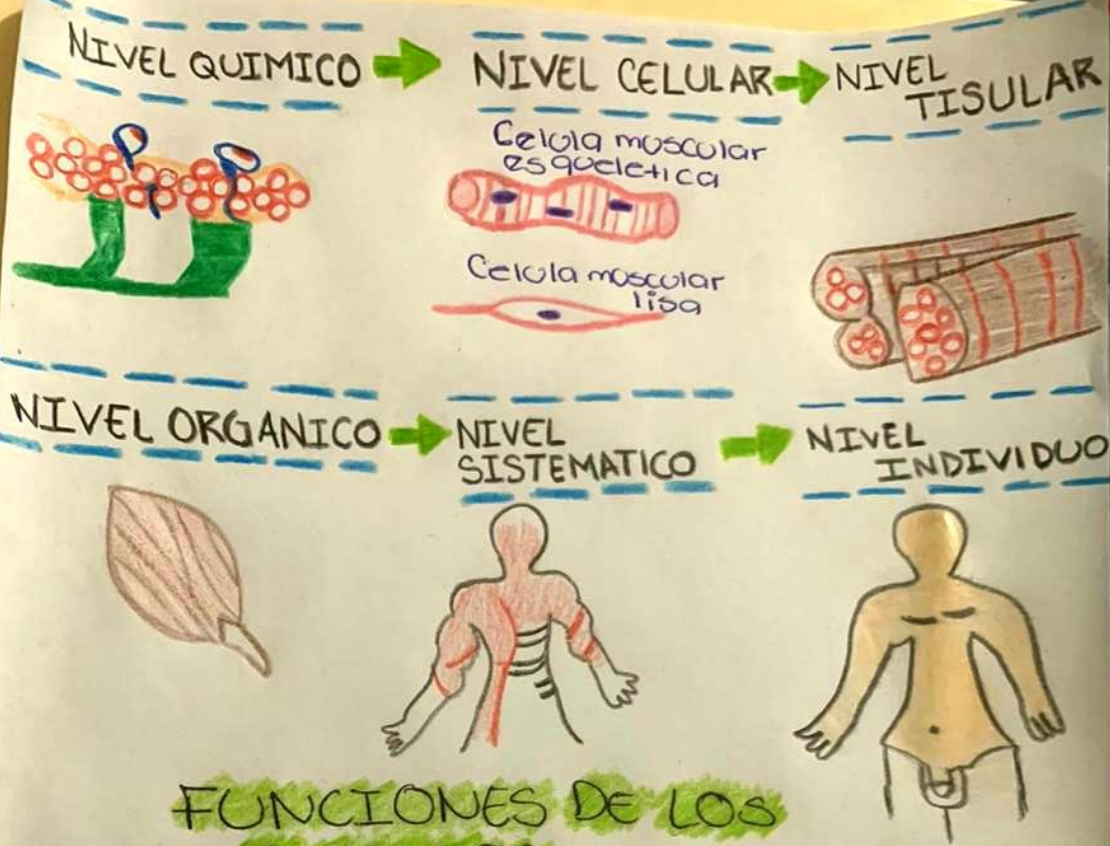 NIVEL QUIMICO
NIVEL CELULAR
NIVEL
TISULAR
Celula muscular
esqueletica
Celula muscular
lisa
NIVEL ORGANICO
NIVEL
SISTEMATICO
NIVEL
INDIVIDUO
FUNCIONES DE LOS